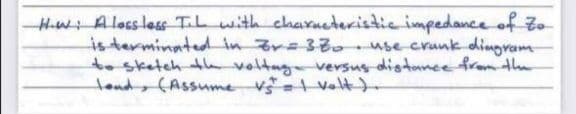 H.W: A loss less T.L with characteristic impedance of Zo
is terminated in Zr = 3Zo . use crank diagram
to sketch the voltage versus distance from the
load, (Assume Vs⁺ = 1 Volt).